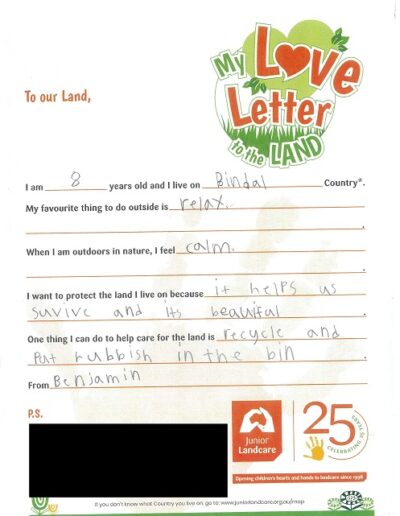 My Love
Letter
to the LAND
To our Land,
I am 8 years old and I live on Bindal Country*.
My favourite thing to do outside is relax.
When I am outdoors in nature, I feel calm.
I want to protect the land I live on because it helps us
survive and its beautiful
One thing I can do to help care for the land is recycle and
Put rubbish in the bin
From Benjamin
P.S.
Junior
Landcare
25 YEARS
CELEBRATING
Opening children's hearts and hands to landcare since 1998
If you don't know what Country you live on, go to: www.juniorlandcare.org.au/map